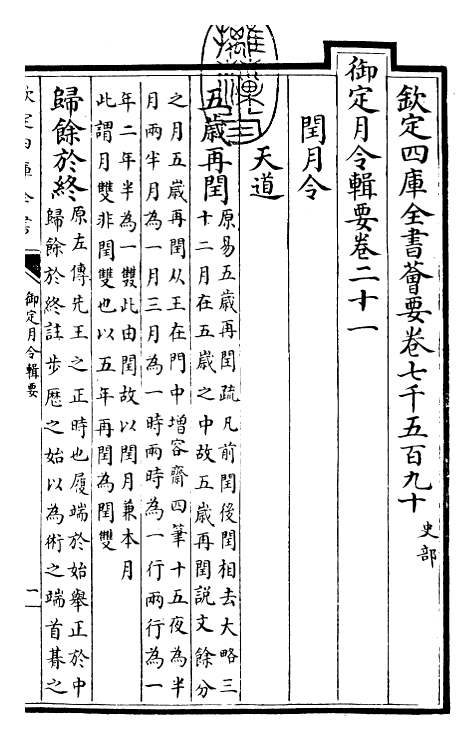 欽定四庫全書薈要卷七千五百九十 史部
御定月令輯要卷二十一
閏月令
天道
五歲再閏 原易五歲再閏疏凡前閏後閏相去大略三
十二月在五歲之中故五歲再閏説文餘分
之月五歲再閏从王在門中增容齋四筆十五夜為半
月兩半月為一月三月為一時兩時為一行兩行為一
年二年半為一雙此由閏故以閏月兼本月
此謂月雙非閏雙也以五年再閏為閏雙
歸餘於終 原左傳先王之正時也履端於始舉正於中
歸餘於終註步歷之始以為術之端首朞之
欽定四庫全書
御定月令輯要
一